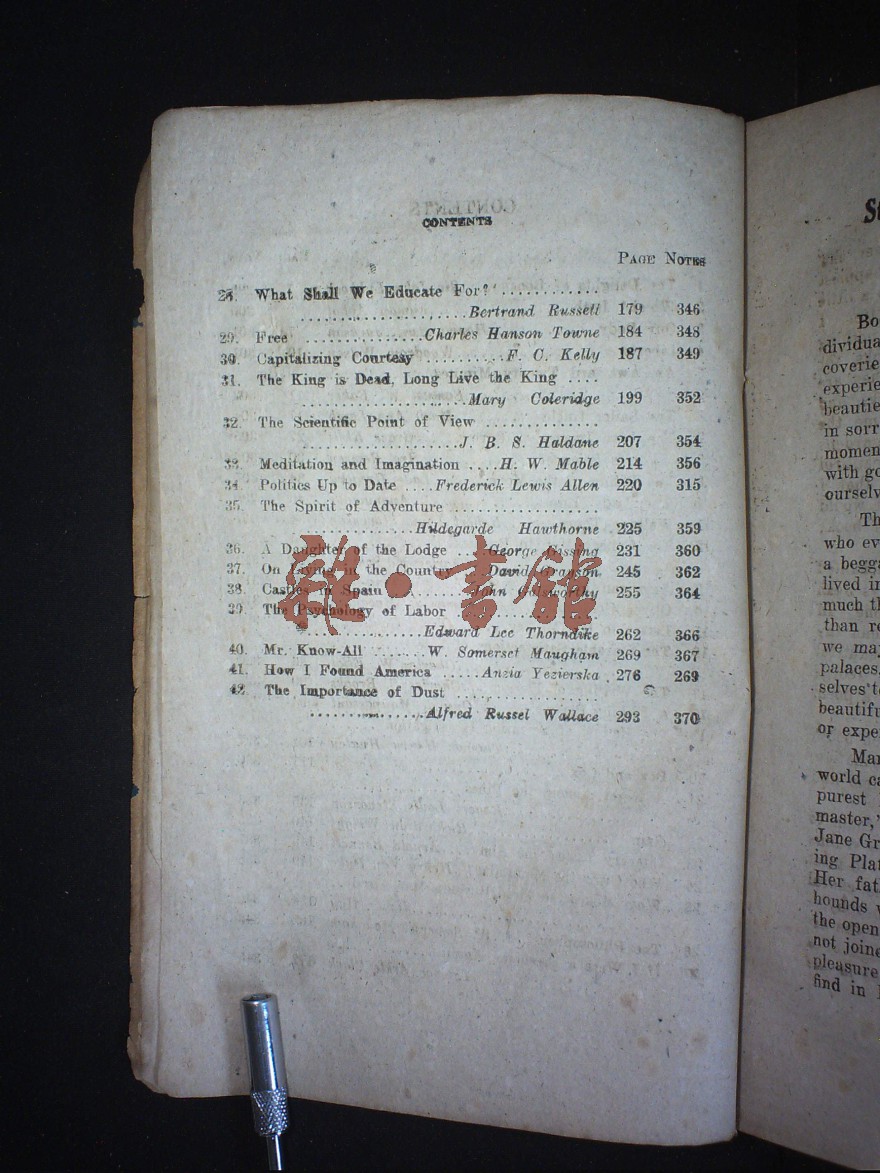 CONTENTS
PAGE NOTES
28. What Shall We Educate For? ............
....................Bertrand Russell 179 346
29. Free ...............Charles Hanson Towne 184 348
30. Capitalizing Courtesy .........F. C. Kelly 187 349
31. The King is Dead, Long Live the King ....
....................Mary Coleridge 199 352
32. The Scientific Point of View ..............
....................J. B. S. Haldane 207 354
33. Meditation and Imagination ....H. W. Mable 214 356
34. Politics Up to Date ....Frederick Lewis Allen 220 315
35. The Spirit of Adventure ..................
..............Hildegarde Hawthorne 225 359
36. A Daughter of the Lodge ....George Gissing 231 360
37. On Living in the Country David Grayson 245 362
38. Castles in Spain ..........John Galsworthy 255 364
39. The Psychology of Labor ..............
..............Edward Lee Thorndike 262 366
40. Mr. Know-All .......W. Somerset Maugham 269 367
41. How I Found America .....Anzia Yezierska 276 269
42. The Importance of Dust ..................
..............Alfred Russel Wallace 293 370
雜·書館
St
Bo
dividua
coverie
experie
beautie
in sorr
momen
with go
ourselv
Th
who ev
a begga
lived in
much th
than re
we may
palaces.
selves to
beautifu
or expe
Man
world ca
purest
master,"
Jane Gr
ing Plat
Her fat
hounds w
the open
not joine
pleasure
find in